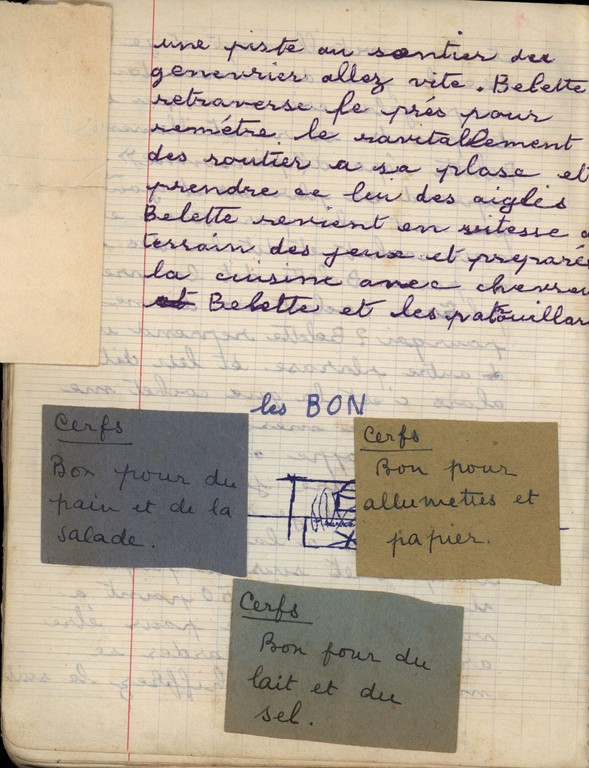 une piste au sentier des
genevrier allez vite. Belette
retraverse le prés pour
remétre le ravitallement
des routier a sa plase et
prendre ce leu des aigles
Belette revient en vitesse a
terrain des jeux et preparé
la cuisine avec chevreu
et Belette et les patouillar
les BON
Cerfs
Bon pour du
pain et de la
salade.
Cerfs
Bon pour
allumettes et
papier.
Cerfs
Bon pour du
lait et du
sel.